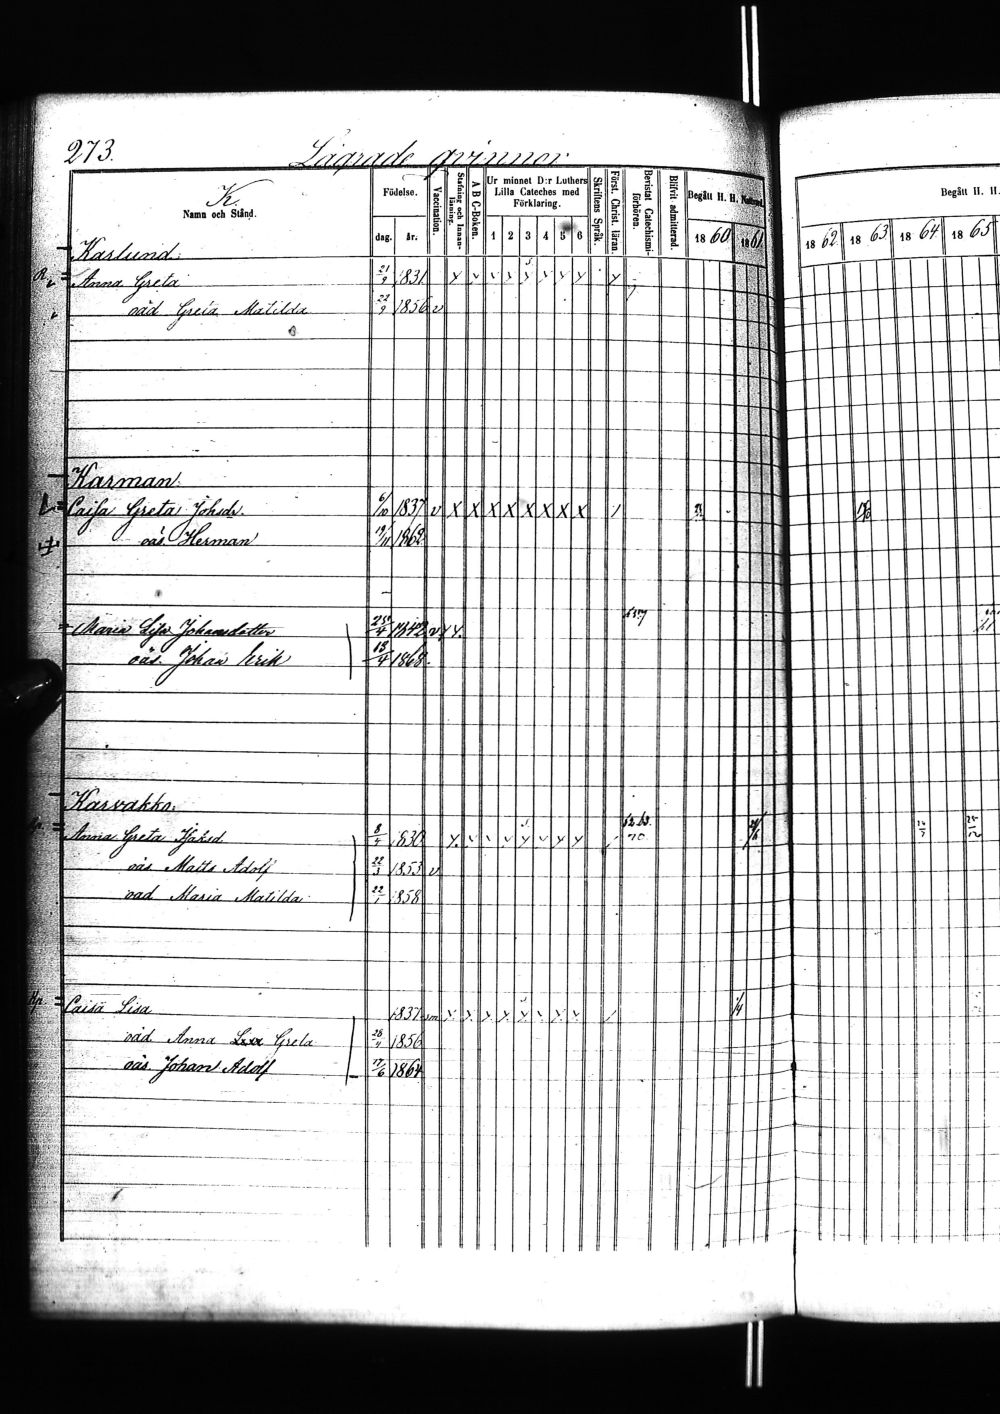 273. Lägrade qvinnor
K.
Namn och Stånd.
Födelse.
dag. år.
Vaccination.
Stafning och Innanläsning.
A B C-Boken.
Ur minnet D:r Luthers Lilla Cateches med Förklaring.
1 2 3 4 5 6
Skriftens Språk.
Först. Christ. läran.
Bevistat Catechismiförhören.
Blifvit admitterad.
Begått H. H. Nattvard.
1860 1861
Begått H. H.
1862 1863 1864 1865
Karlund.
Anna Greta 21/9 1831
oäd Greta Matilda 22/9 1856 v
Karman
Caisa Greta Johsdr. 6/10 1837 v X X X X X X X X
oäs. Herman 19/11 1862
Maria Lisa Johansdotter 25/4 1842 v
oäs. Johan Erik 13/4 1868
Karvakko.
Anna Greta Isaksd 8/4 1830
oäs Matts Adolf 22/3 1853 v
oäd Maria Matilda 22/1 1858
Caisa Lisa 1837
oäd Anna Greta 28/11 1856
oäs. Johan Adolf 17/6 1864